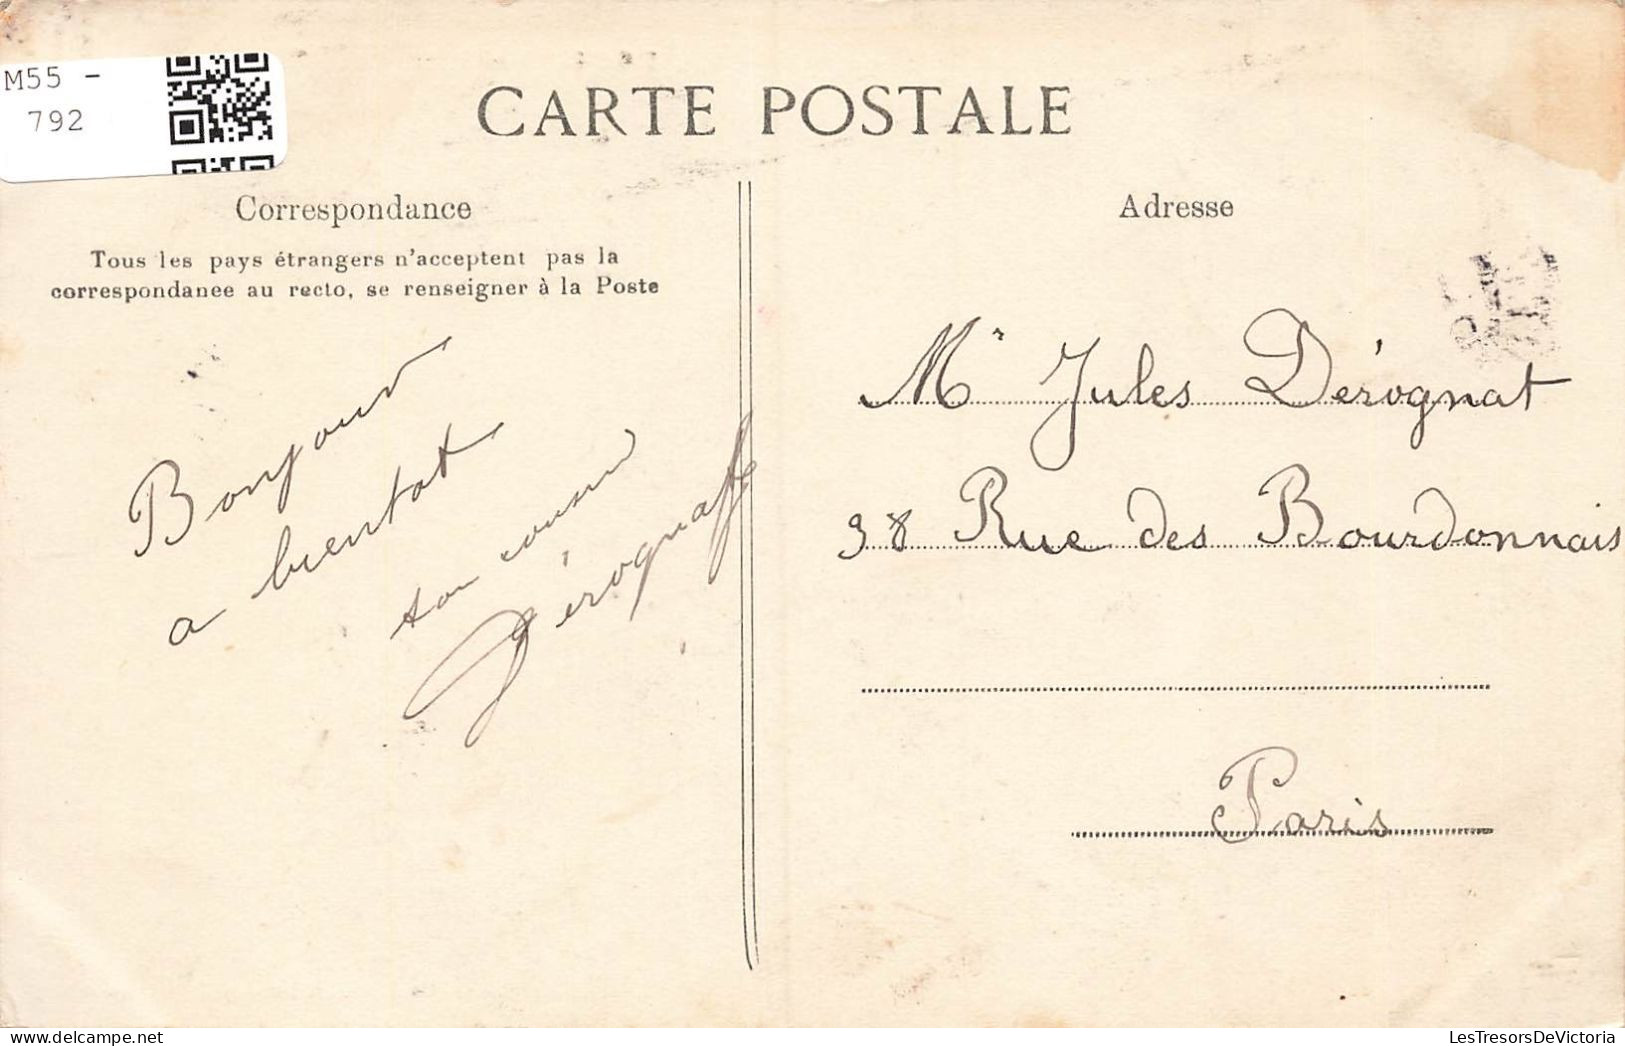 M55 -
792
CARTE POSTALE
Correspondance
Adresse
Tous les pays étrangers n'acceptent pas la
correspondanee au recto, se renseigner à la Poste
Bonjour
a bientot
ton cousin
Dérognat
Mr Jules Dérognat
38 Rue des Bourdonnais
Paris
LesTresorsDeVictoria